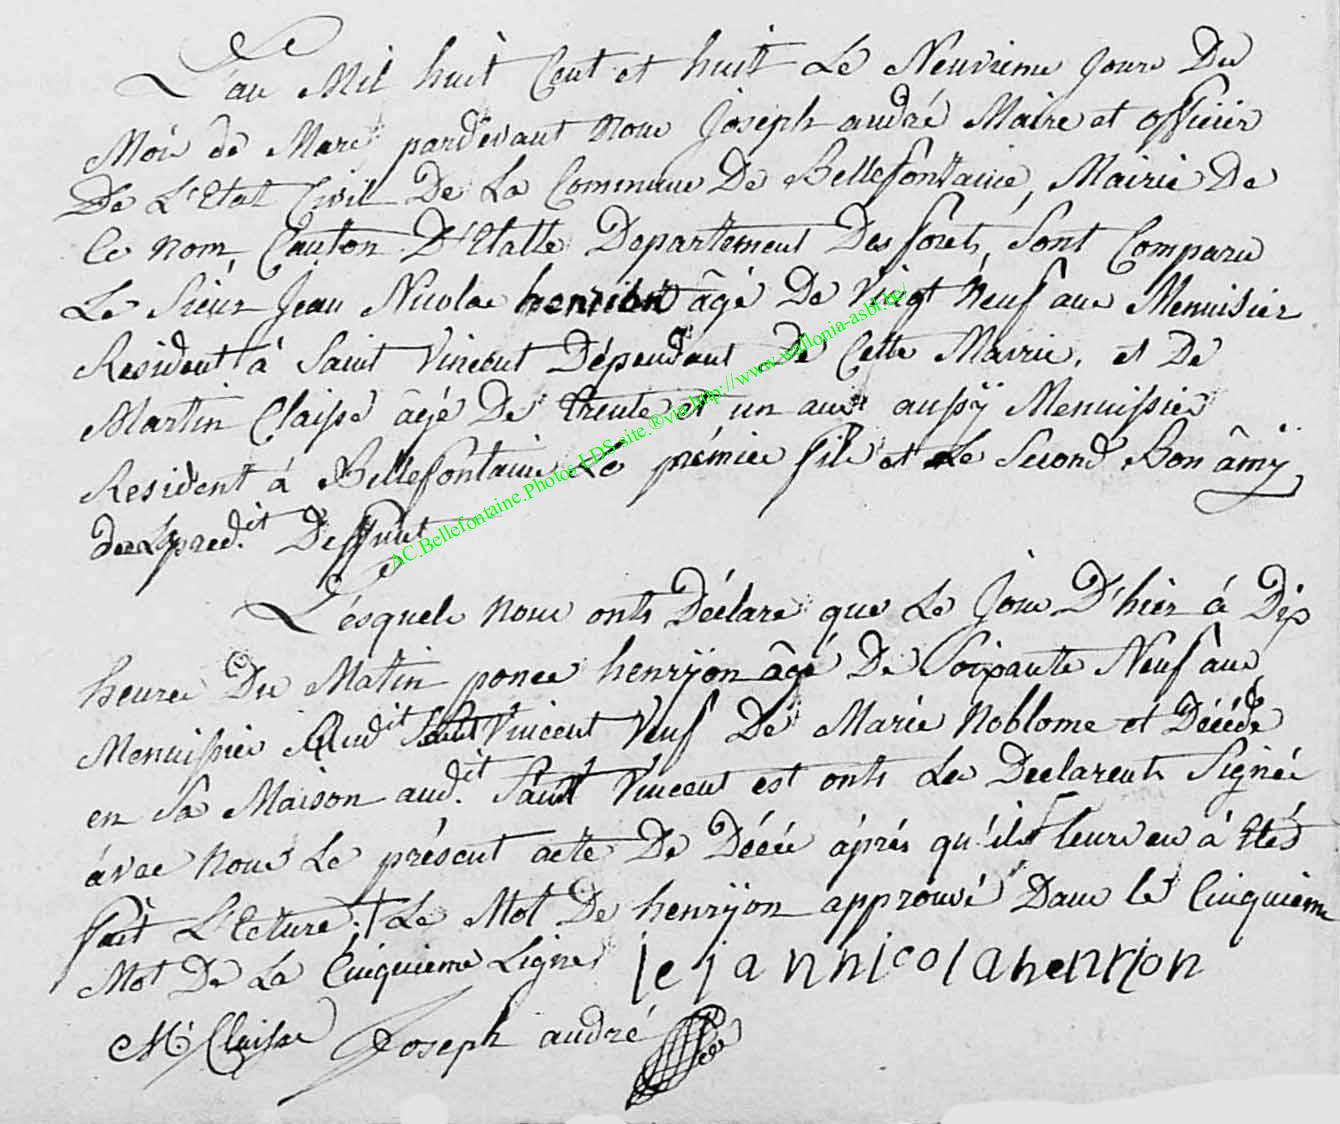 L'an Mil huit Cent et huit Le Neuvieme Jour Du
Mois de Mars pardevant nous Joseph andré Maire et officier
De L'Etat Civil De La Commune De Bellefontaine, Mairie De
Ce nom Canton D'Etalle Departement Des forets, Sont Comparu
Le Sieur Jean Nicolas henrion âgé De Vingt Neuf ans Menuisier
Resident à Saint Vincent Dépendant de Cette Mairie, et De
Martin Claisse âgé De trente et un ans aussÿ Menuissier
Resident à Bellefontaine Le prémier fils et Le Second Bon âmÿ
pred.it Deffunt
Lésquels nous onts Déclare que Le Jour D'hier á Dix
heures Du Matin ponce henrÿon âgé De Soixante Neuf ans
Menuissier Aud.it Saint Vincent Veuf De Marie Noblome et Décédé
en Sa Maison aud.it Saint Vincent est onts Les Declarents Signés
ávec nous Le présent acte De Décés áprés qu'ils leurs en à Etés
fait L'Ecture. † Le Mot De henrÿon approuvé Dans le Cinquieme
Mot De La Cinquieme Ligne je jannicolahenrion
M Claisse Joseph andré
AC.Bellefontaine.Photos LDS-site.®via.http://www.wallonia-asbl.be/